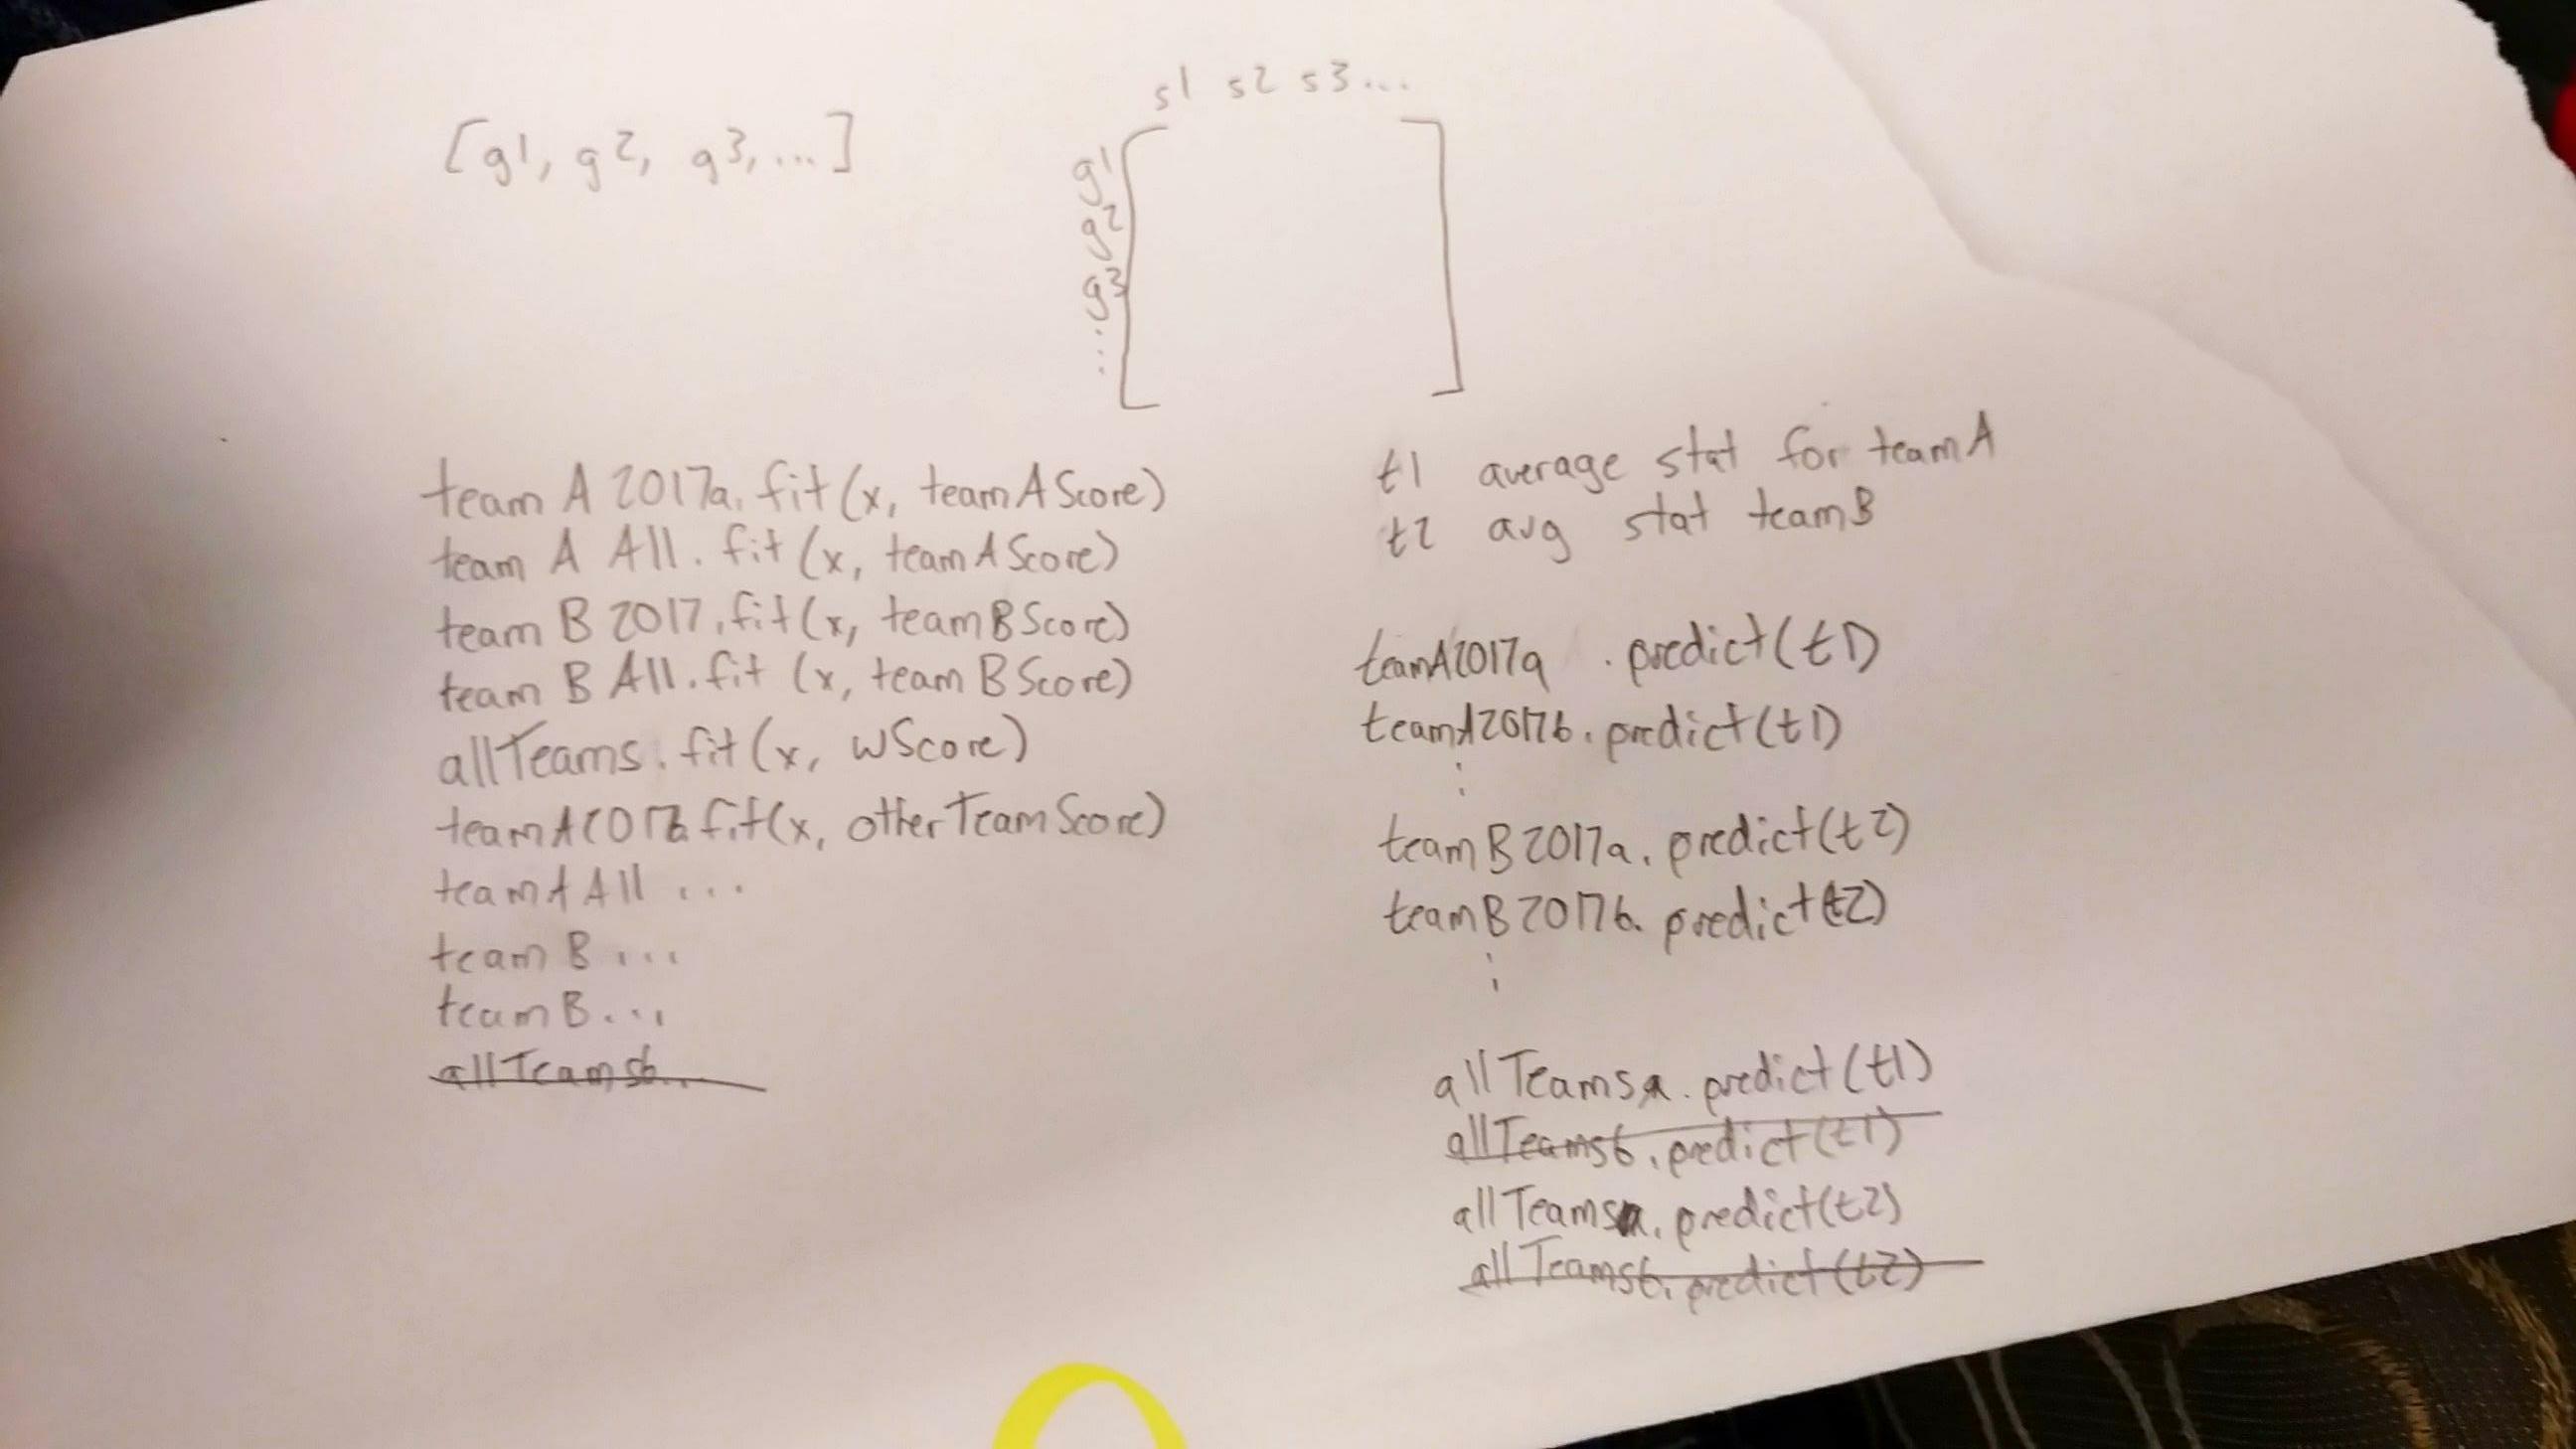 [g1, g2, g3, ...]
s1 s2 s3...
g1
g2
g3
...
team A 2017a. fit (x, team A Score)
team A All. fit (x, team A Score)
team B 2017. fit (x, team B Score)
team B All. fit (x, team B Score)
allTeams. fit (x, wScore)
teamA2017b fit(x, otherTeamScore)
teamA All ...
team B ...
teamB...
allTeamsb...
t1 average stat for teamA
t2 avg stat teamB
teamA2017a . predict(t1)
teamA2017b. predict(t1)
⋮
teamB2017a. predict(t2)
teamB2017b. predict(t2)
⋮
allTeamsa. predict(t1)
allTeamsb. predict(t1)
allTeamsa. predict(t2)
allTeamsb. predict(t2)